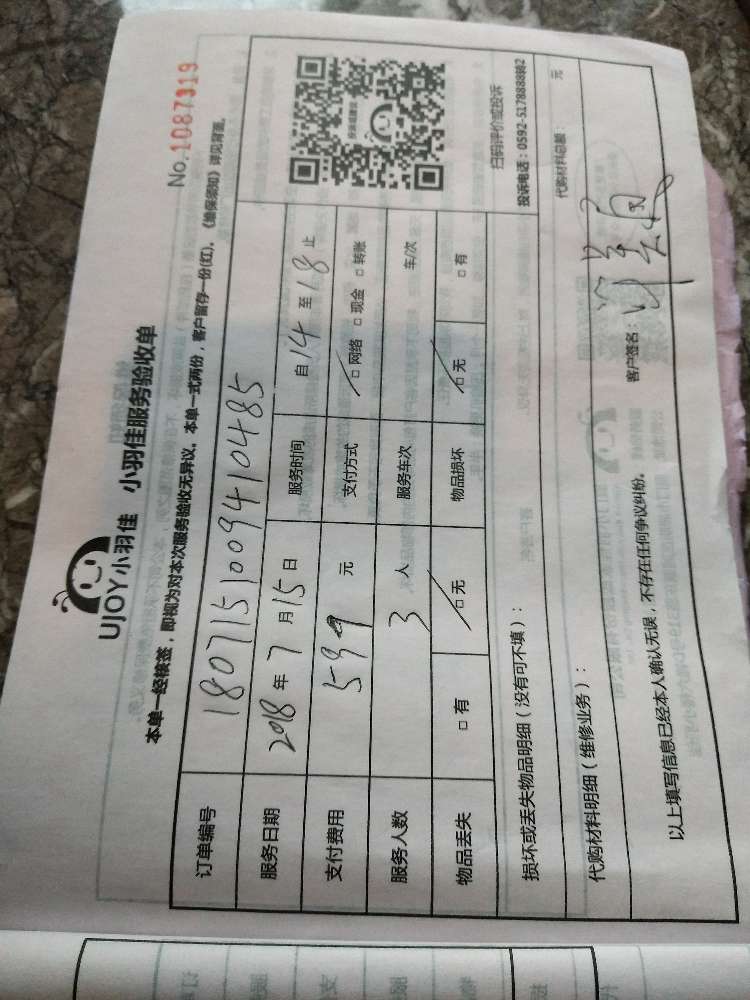 No.1087919
UJOY小羽佳 小羽佳服务验收单
本单一经核签，即视为对本次服务验收无异议。本单一式两份，客户留存一份(红)。《维保须知》详见背面。
订单编号 1807151009410485
服务日期 2018 年 7 月 15 日 服务时间 自 14 至 18 止
支付费用 599 元 支付方式 □ 网络 □ 现金 □ 转账
服务人数 3 人 服务车次 车/次
物品丢失 □ 有 □ 无 物品损坏 □ 无 □ 有
扫码评价或投诉
投诉电话：0592-5178888转2
损坏或丢失物品明细（没有可不填）：
代购材料明细（维修业务）： 代购材料总额： 元
以上填写信息已经本人确认无误，不存在任何争议纠纷。 客户签名：